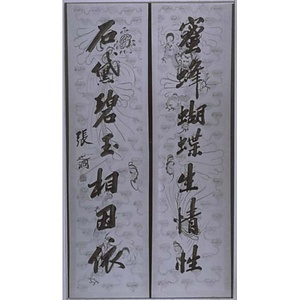 蜜蜂蝴蝶生情性
石黛碧玉相因依
張